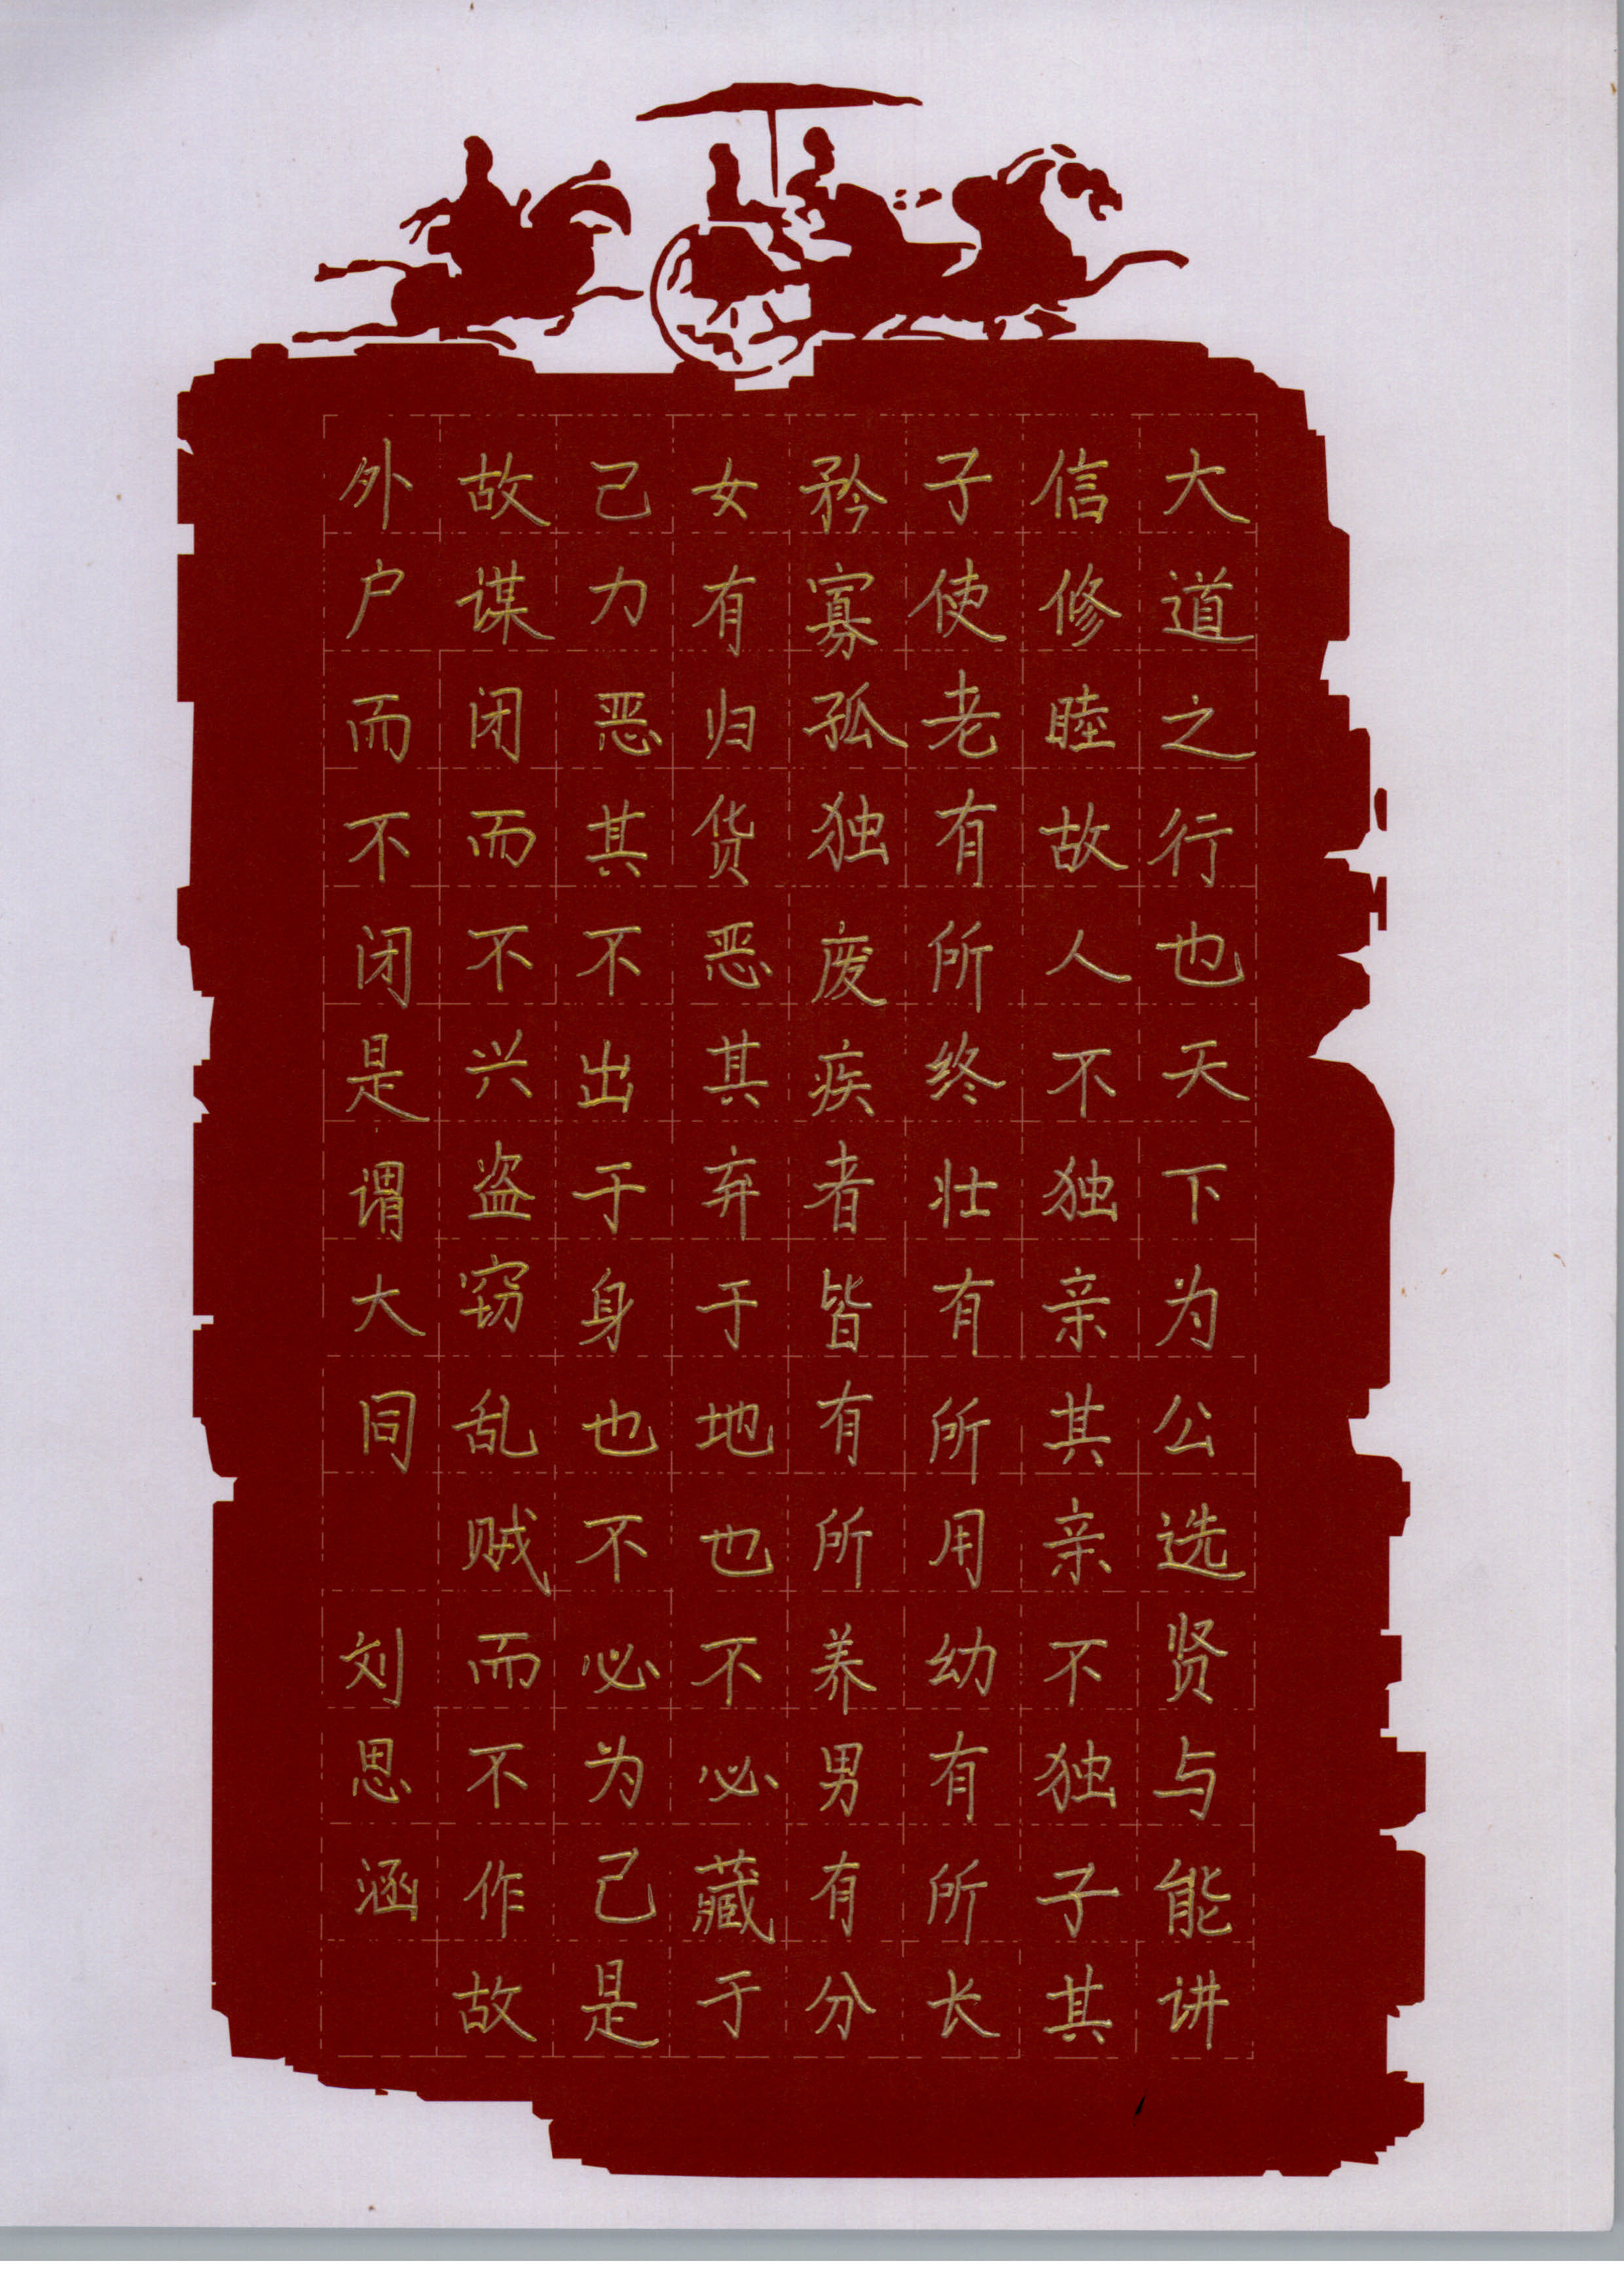 大道之行也天下为公选贤与能讲
信修睦故人不独亲其亲不独子其
子使老有所终壮有所用幼有所长
矜寡孤独废疾者皆有所养男有分
女有归货恶其弃于地也不必藏于
己力恶其不出于身也不必为己是
故谋闭而不兴盗窃乱贼而不作故
外户而不闭是谓大同 刘思涵